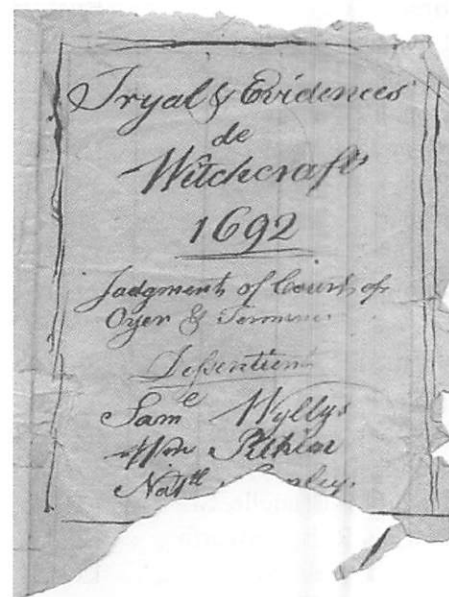 Tryal & Evidences
de
Witchcraft
1692
Judgment of Court of
Oyer & Terminer
Samˡ Wyllys
Wm Pitkin
Natˡˡ